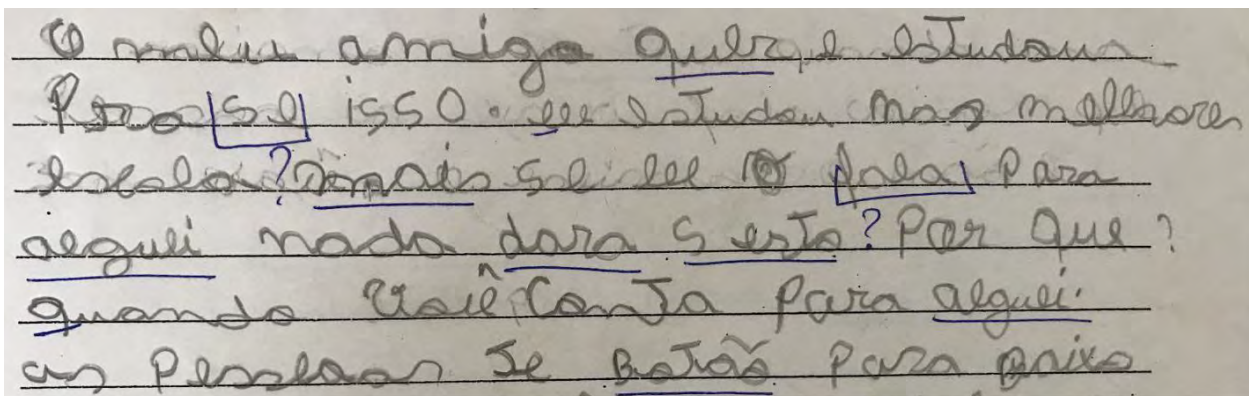 O meu amigo querze estudou
Para se isso. ele estudou nas melhores
escola? mais se ele fala para
alguei nada dara sesto? Por que?
quando você conta para alguei.
as pessoas te Botão para baixo